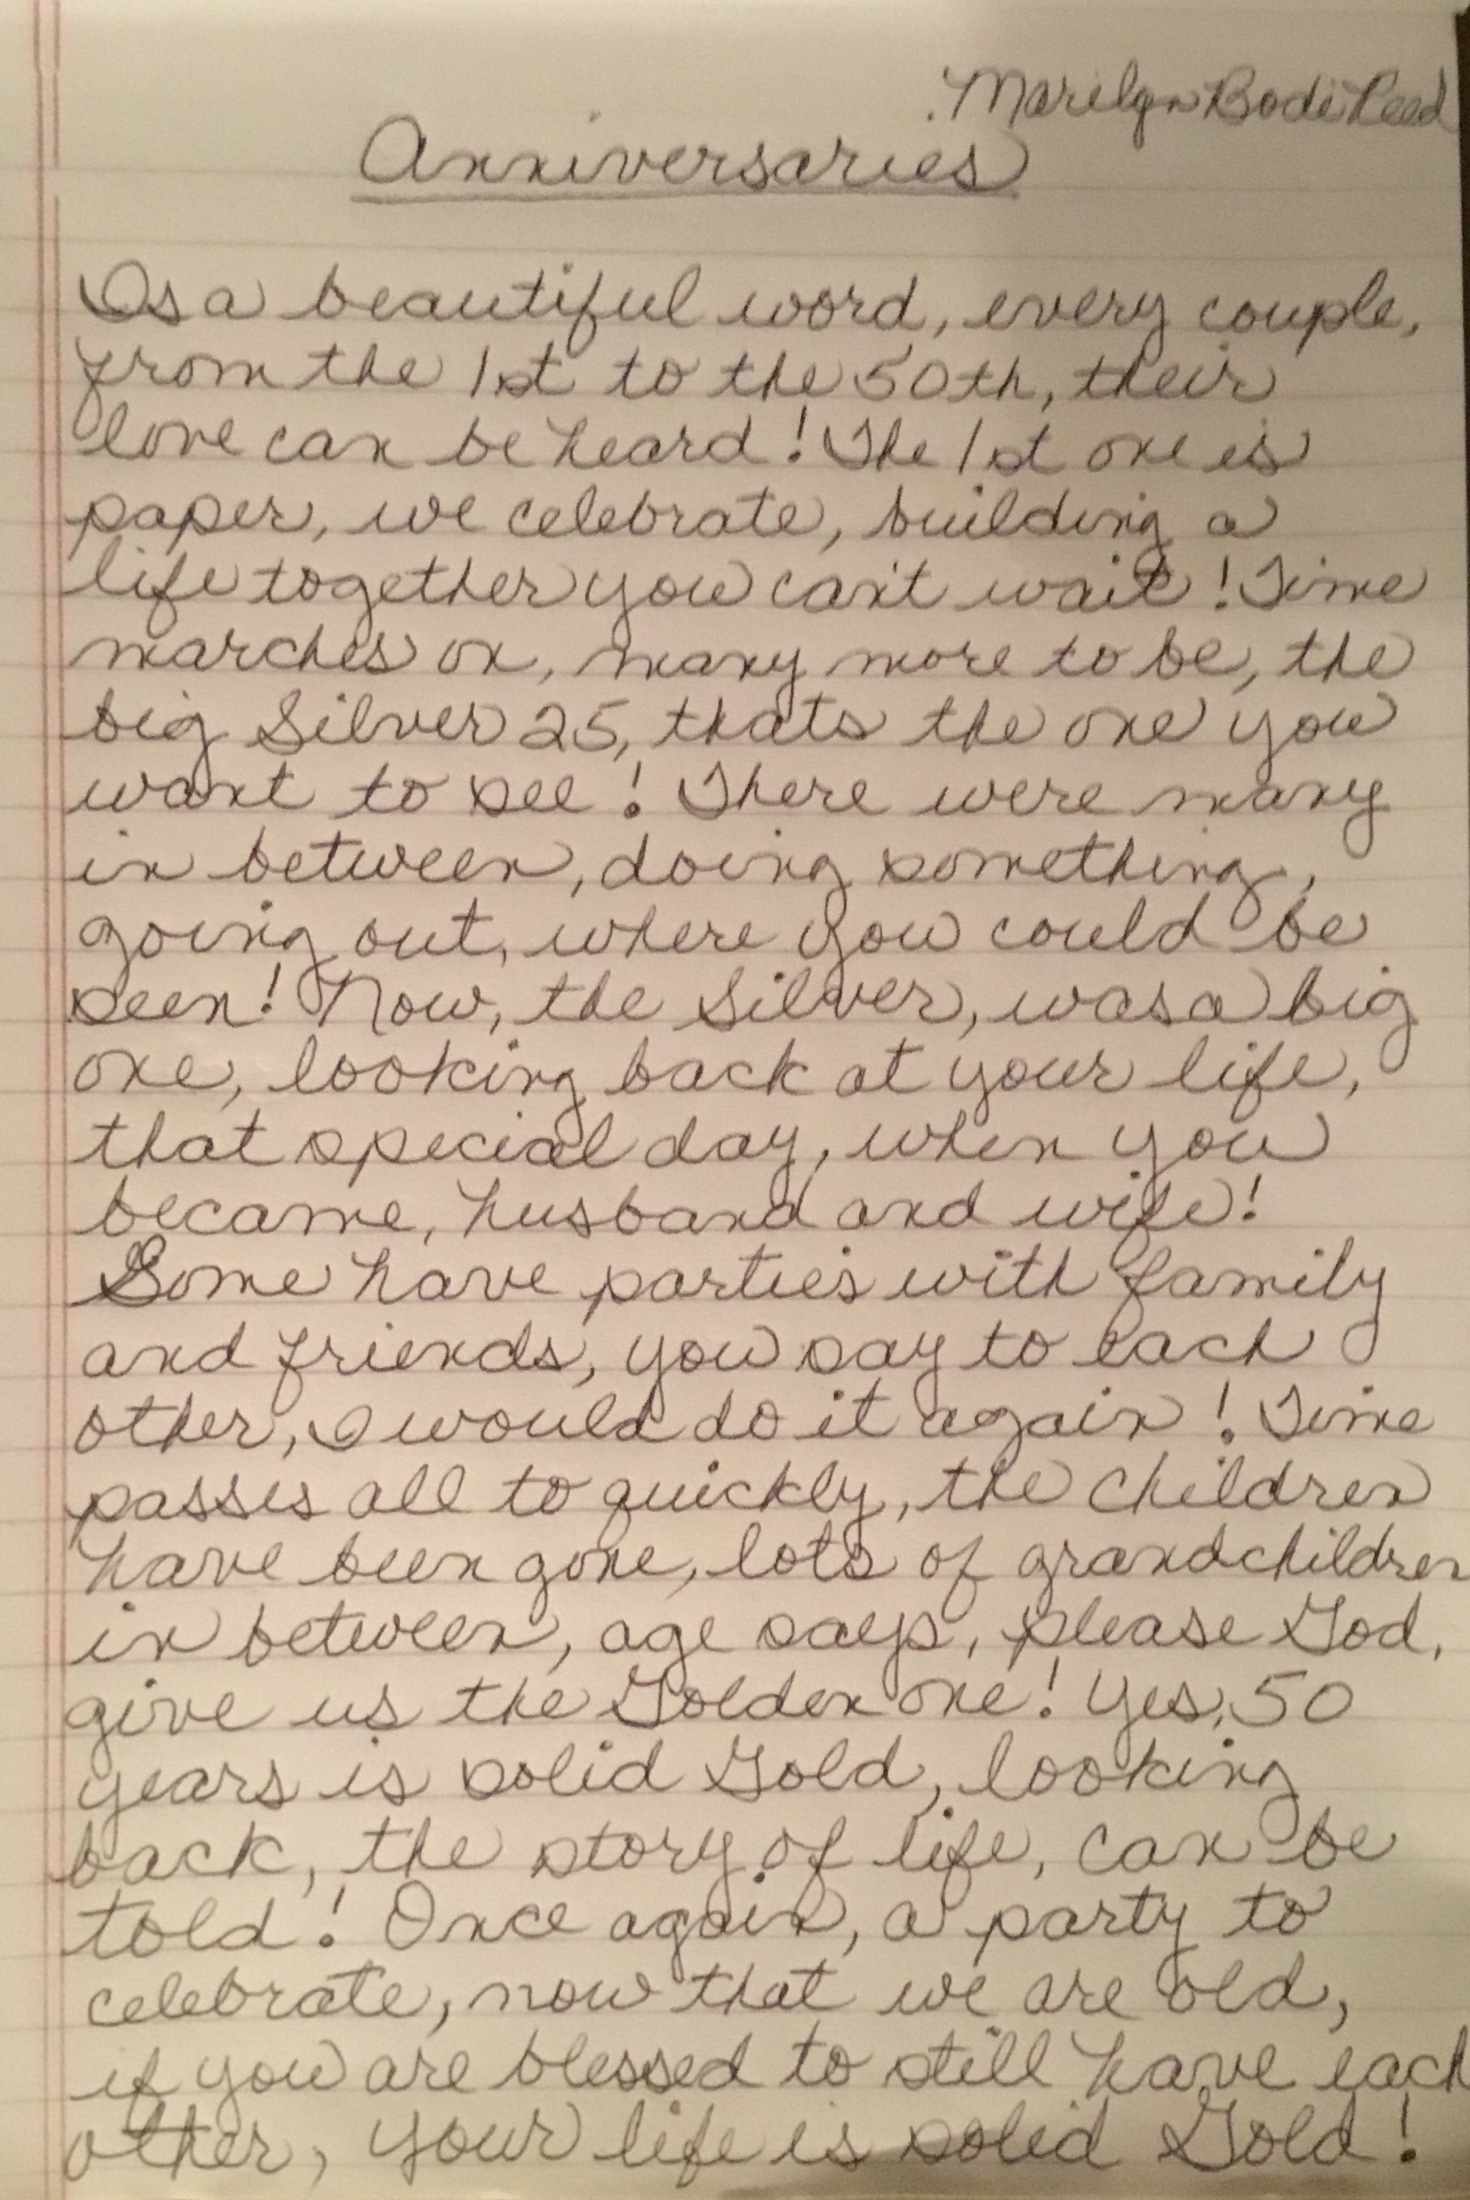 Marilyn Bodi Reed
Anniversaries
Is a beautiful word, every couple,
from the 1st to the 50th, their
love can be heard! The 1st one is
paper, we celebrate, building a
life together you can't wait! Time
marches on, many more to be, the
big Silver 25, thats the one you
want to see! There were many
in between, doing something,
going out, where you could be
seen! Now, the Silver, was a big
one, looking back at your life,
that special day, when you
became, husband and wife!
Some have parties with family
and friends, you say to each
other, I would do it again! Time
passes all to quickly, the children
have been gone, lots of grandchildren
in between, age says, please God,
give us the Golden one! Yes, 50
years is solid Gold, looking
back, the story of life, can be
told! Once again, a party to
celebrate, now that we are old,
if you are blessed to still have each
other, your life is solid Gold!